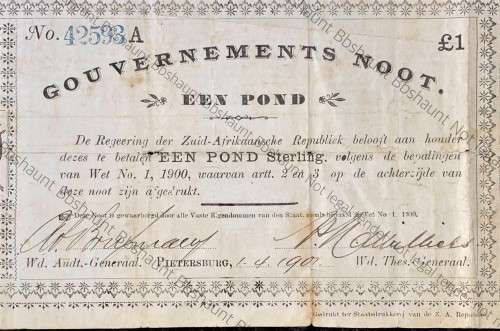 No. 42593 A £1
GOUVERNEMENTS NOOT.
EEN POND
De Regeering der Zuid-Afrikaansche Republiek belooft aan houder
dezes te betalen EEN POND Sterling, volgens de bepalingen
van Wet No. 1, 1900, waarvan artt. 2 en 3 op de achterzijde van
deze noot zijn afgedrukt.
Deze Noot is gewaarborgd door alle Vaste Eigendommen van den Staat, Wet No. 1, 1900.
Wd. Audt.-Generaal. PIETERSBURG, 1.4.1901 Wd. Thes.-Generaal.
Gedrukt ter Staatsdrukkerij van de Z. A. Republiek
Bbshaunt Not legal tender